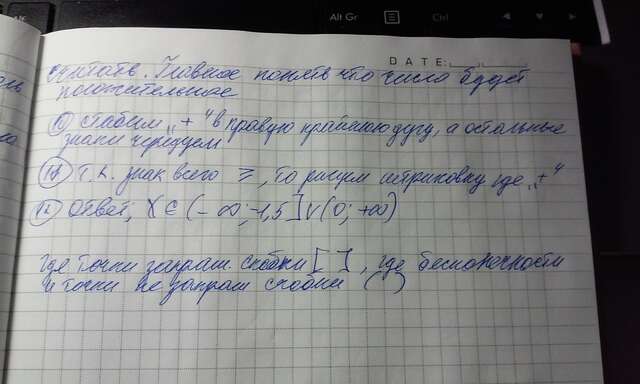 Alt Gr
Ctrl
DATE:
считать. Главное понять что число будет
положительное
10 Ставим "+" в правую крайнюю дугу, а остальные
знаки чередуем
11 Т.к. знак всего ≥, то рисуем штриховку где "+"
12 Ответ; X ∈ (-∞; -1,5] ∨ (0; +∞)
где точки закраш. скобки [ ], где бесконечности
и точки не закраш скобки ( )